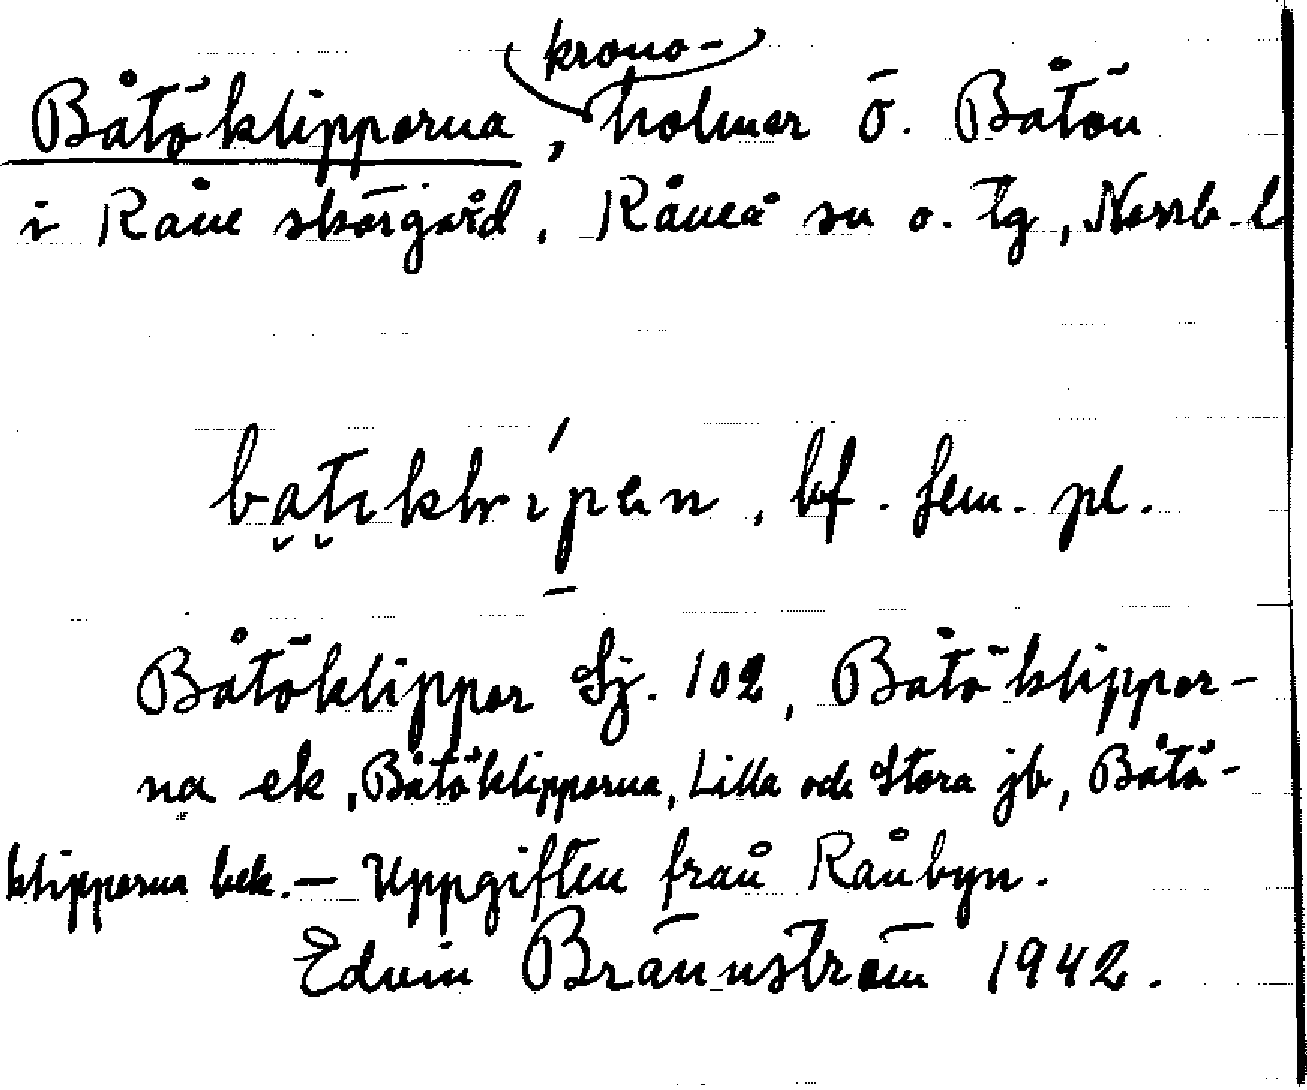 krono-
Båtöklipporna, holmar ö. Båtön
i Råne skärgård, Råneå sn o. tg, Norrb. l
bf. fem. pl.
Båtöklippor Sj. 102, Båtöklippor-
na ek, Båtöklipporna, Lilla och Stora jb, Båtö-
klipporna bek. — Uppgiften från Rånbyn.
Edvin Brännström 1942.